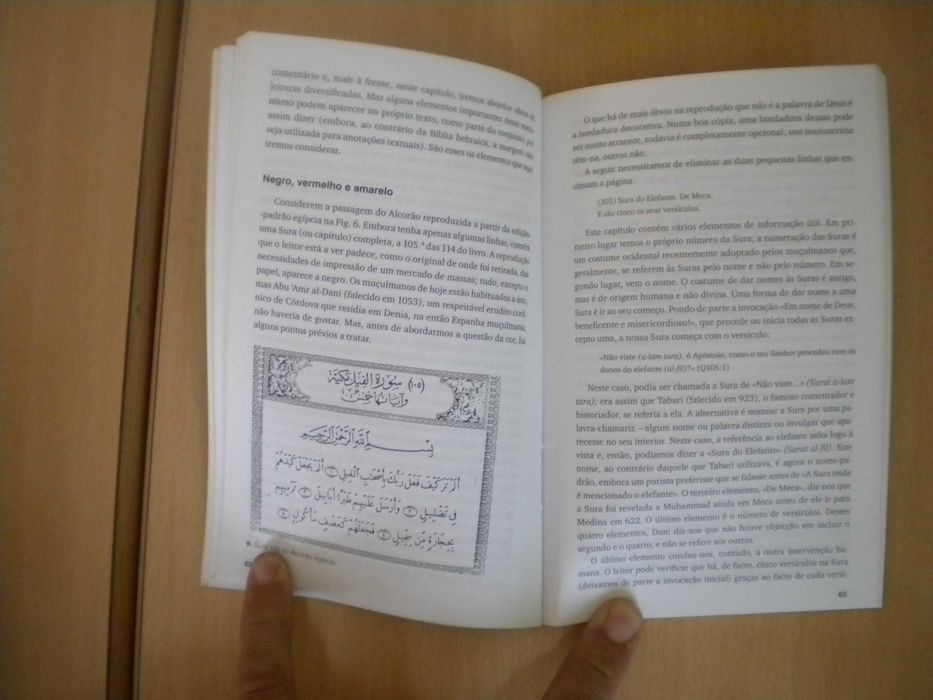 comentário e, mais à frente, neste capítulo, iremos abordar obras de
leituras diversificadas. Mas alguns elementos importantes deste meca-
nismo podem aparecer no próprio texto, como parte do conjunto, por
assim dizer (embora, ao contrário da Bíblia hebraica, a margem não
seja utilizada para anotações textuais). São esses os elementos que aqui
iremos considerar.
Negro, vermelho e amarelo
Considerem a passagem do Alcorão reproduzida a partir da edição-
-padrão egípcia na Fig. 6. Embora tenha apenas algumas linhas, contém
uma Sura (ou capítulo) completa, a 105.ª das 114 do livro. A reprodução
que o leitor está a ver padece, como o original de onde foi retirada, das
necessidades de impressão de um mercado de massas; tudo, excepto o
papel, aparece a negro. Os muçulmanos de hoje estão habituados a isto,
mas Abu 'Amr al-Dani (falecido em 1053), um respeitável erudito corâ-
nico de Córdova que residia em Denia, na então Espanha muçulmana,
não haveria de gostar. Mas, antes de abordarmos a questão da cor, há
alguns pontos prévios a tratar.
(١٠٥) سورة الفيل مكية
وآياتها خمس
بِسْمِ اللَّهِ الرَّحْمَٰنِ الرَّحِيمِ
أَلَمْ تَرَ كَيْفَ فَعَلَ رَبُّكَ بِأَصْحَابِ الْفِيلِ ١ أَلَمْ يَجْعَلْ كَيْدَهُمْ
فِي تَضْلِيلٍ ٢ وَأَرْسَلَ عَلَيْهِمْ طَيْرًا أَبَابِيلَ ٣ تَرْمِيهِم
بِحِجَارَةٍ مِّن سِجِّيلٍ ٤ فَجَعَلَهُمْ كَعَصْفٍ مَّأْكُولٍ ٥
6. Alcorão egípcio.
O que há de mais óbvio na reprodução que não é a palavra de Deus é
a bordadura decorativa. Numa boa cópia, uma bordadura dessas pode
ser muito atraente, todavia é completamente opcional; uns manuscritos
têm-na, outros não.
A seguir necessitamos de eliminar as duas pequenas linhas que en-
cimam a página:
(105) Sura do Elefante. De Meca.
E são cinco os seus versículos.
Este capítulo contém vários elementos de informação útil. Em pri-
meiro lugar temos o próprio número da Sura; a numeração das Suras é
um costume ocidental recentemente adoptado pelos muçulmanos que,
geralmente, se referem às Suras pelo nome e não pelo número. Em se-
gundo lugar, vem o nome. O costume de dar nomes às Suras é antigo,
mas é de origem humana e não divina. Uma forma de dar nome a uma
Sura é ir ao seu começo. Pondo de parte a invocação «Em nome de Deus,
beneficente e misericordioso!», que precede ou inicia todas as Suras ex-
cepto uma, a nossa Sura começa com o versículo:
«Não viste (a-lam tara), ó Apóstulo, como o teu Senhor procedeu com os
donos do elefante (al-fil)?» (Q105:1)
Neste caso, podia ser chamada a Sura de «Não viste...» (Surat a-lam
tara); era assim que Tabari (falecido em 923), o famoso comentador e
historiador, se referia a ela. A alternativa é nomear a Sura por uma pa-
lavra-chamariz – algum nome ou palavra distinta ou invulgar que apa-
recesse no seu interior. Neste caso, a referência ao elefante salta logo à
vista e, então, podíamos dizer a «Sura do Elefante» (Surat al-fil). Esse
nome, ao contrário daquele que Tabari utilizava, é agora o nome-pa-
drão, embora um purista preferisse que se falasse antes de «A Sura onde
é mencionado o elefante». O terceiro elemento, «De Meca», diz-nos que
a Sura foi revelada a Muhammad ainda em Meca antes de ele ir para
Medina em 622. O último elemento é o número de versículos. Destes
quatro elementos, Dani diz-nos que não houve objecção em incluir o
segundo e o quarto, e não se refere aos outros.
O último elemento conduz-nos, contudo, a outra intervenção hu-
mana. O leitor pode verificar que há, de facto, cinco versículos na Sura
(deixamos de parte a invocação inicial) graças ao facto de cada versí-
63